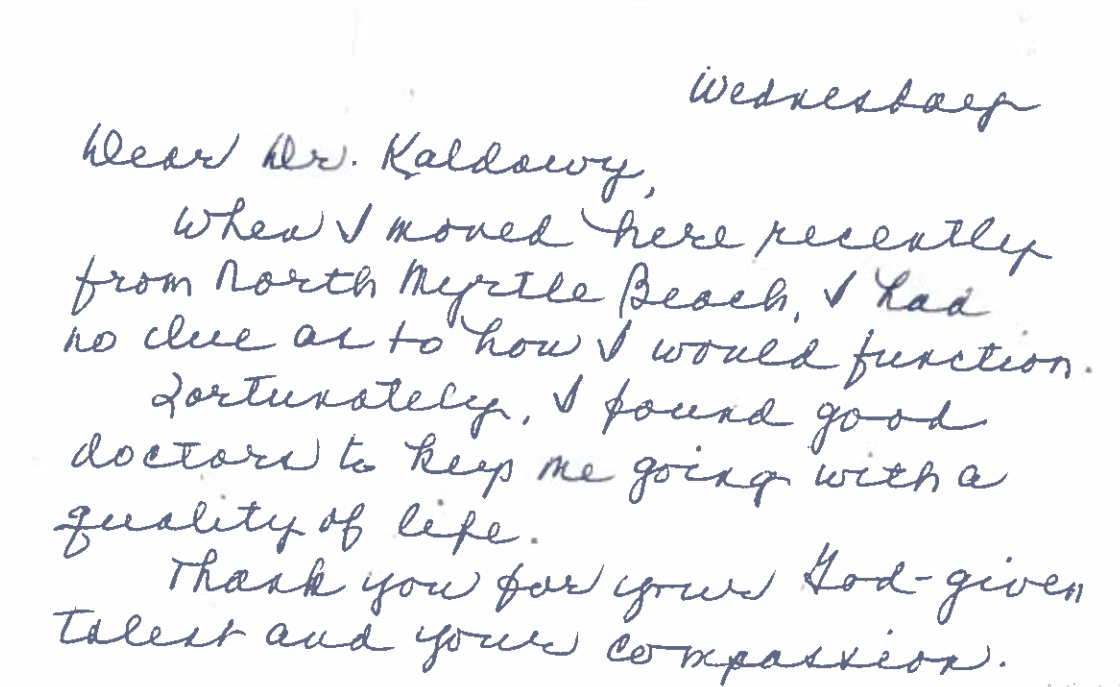 Wednesday
Dear Dr. Kaldawy,
When I moved here recently
from North Myrtle Beach, I had
no clue as to how I would function.
Fortunately, I found good
doctors to keep me going with a
quality of life.
Thank you for your God-given
talent and your compassion.